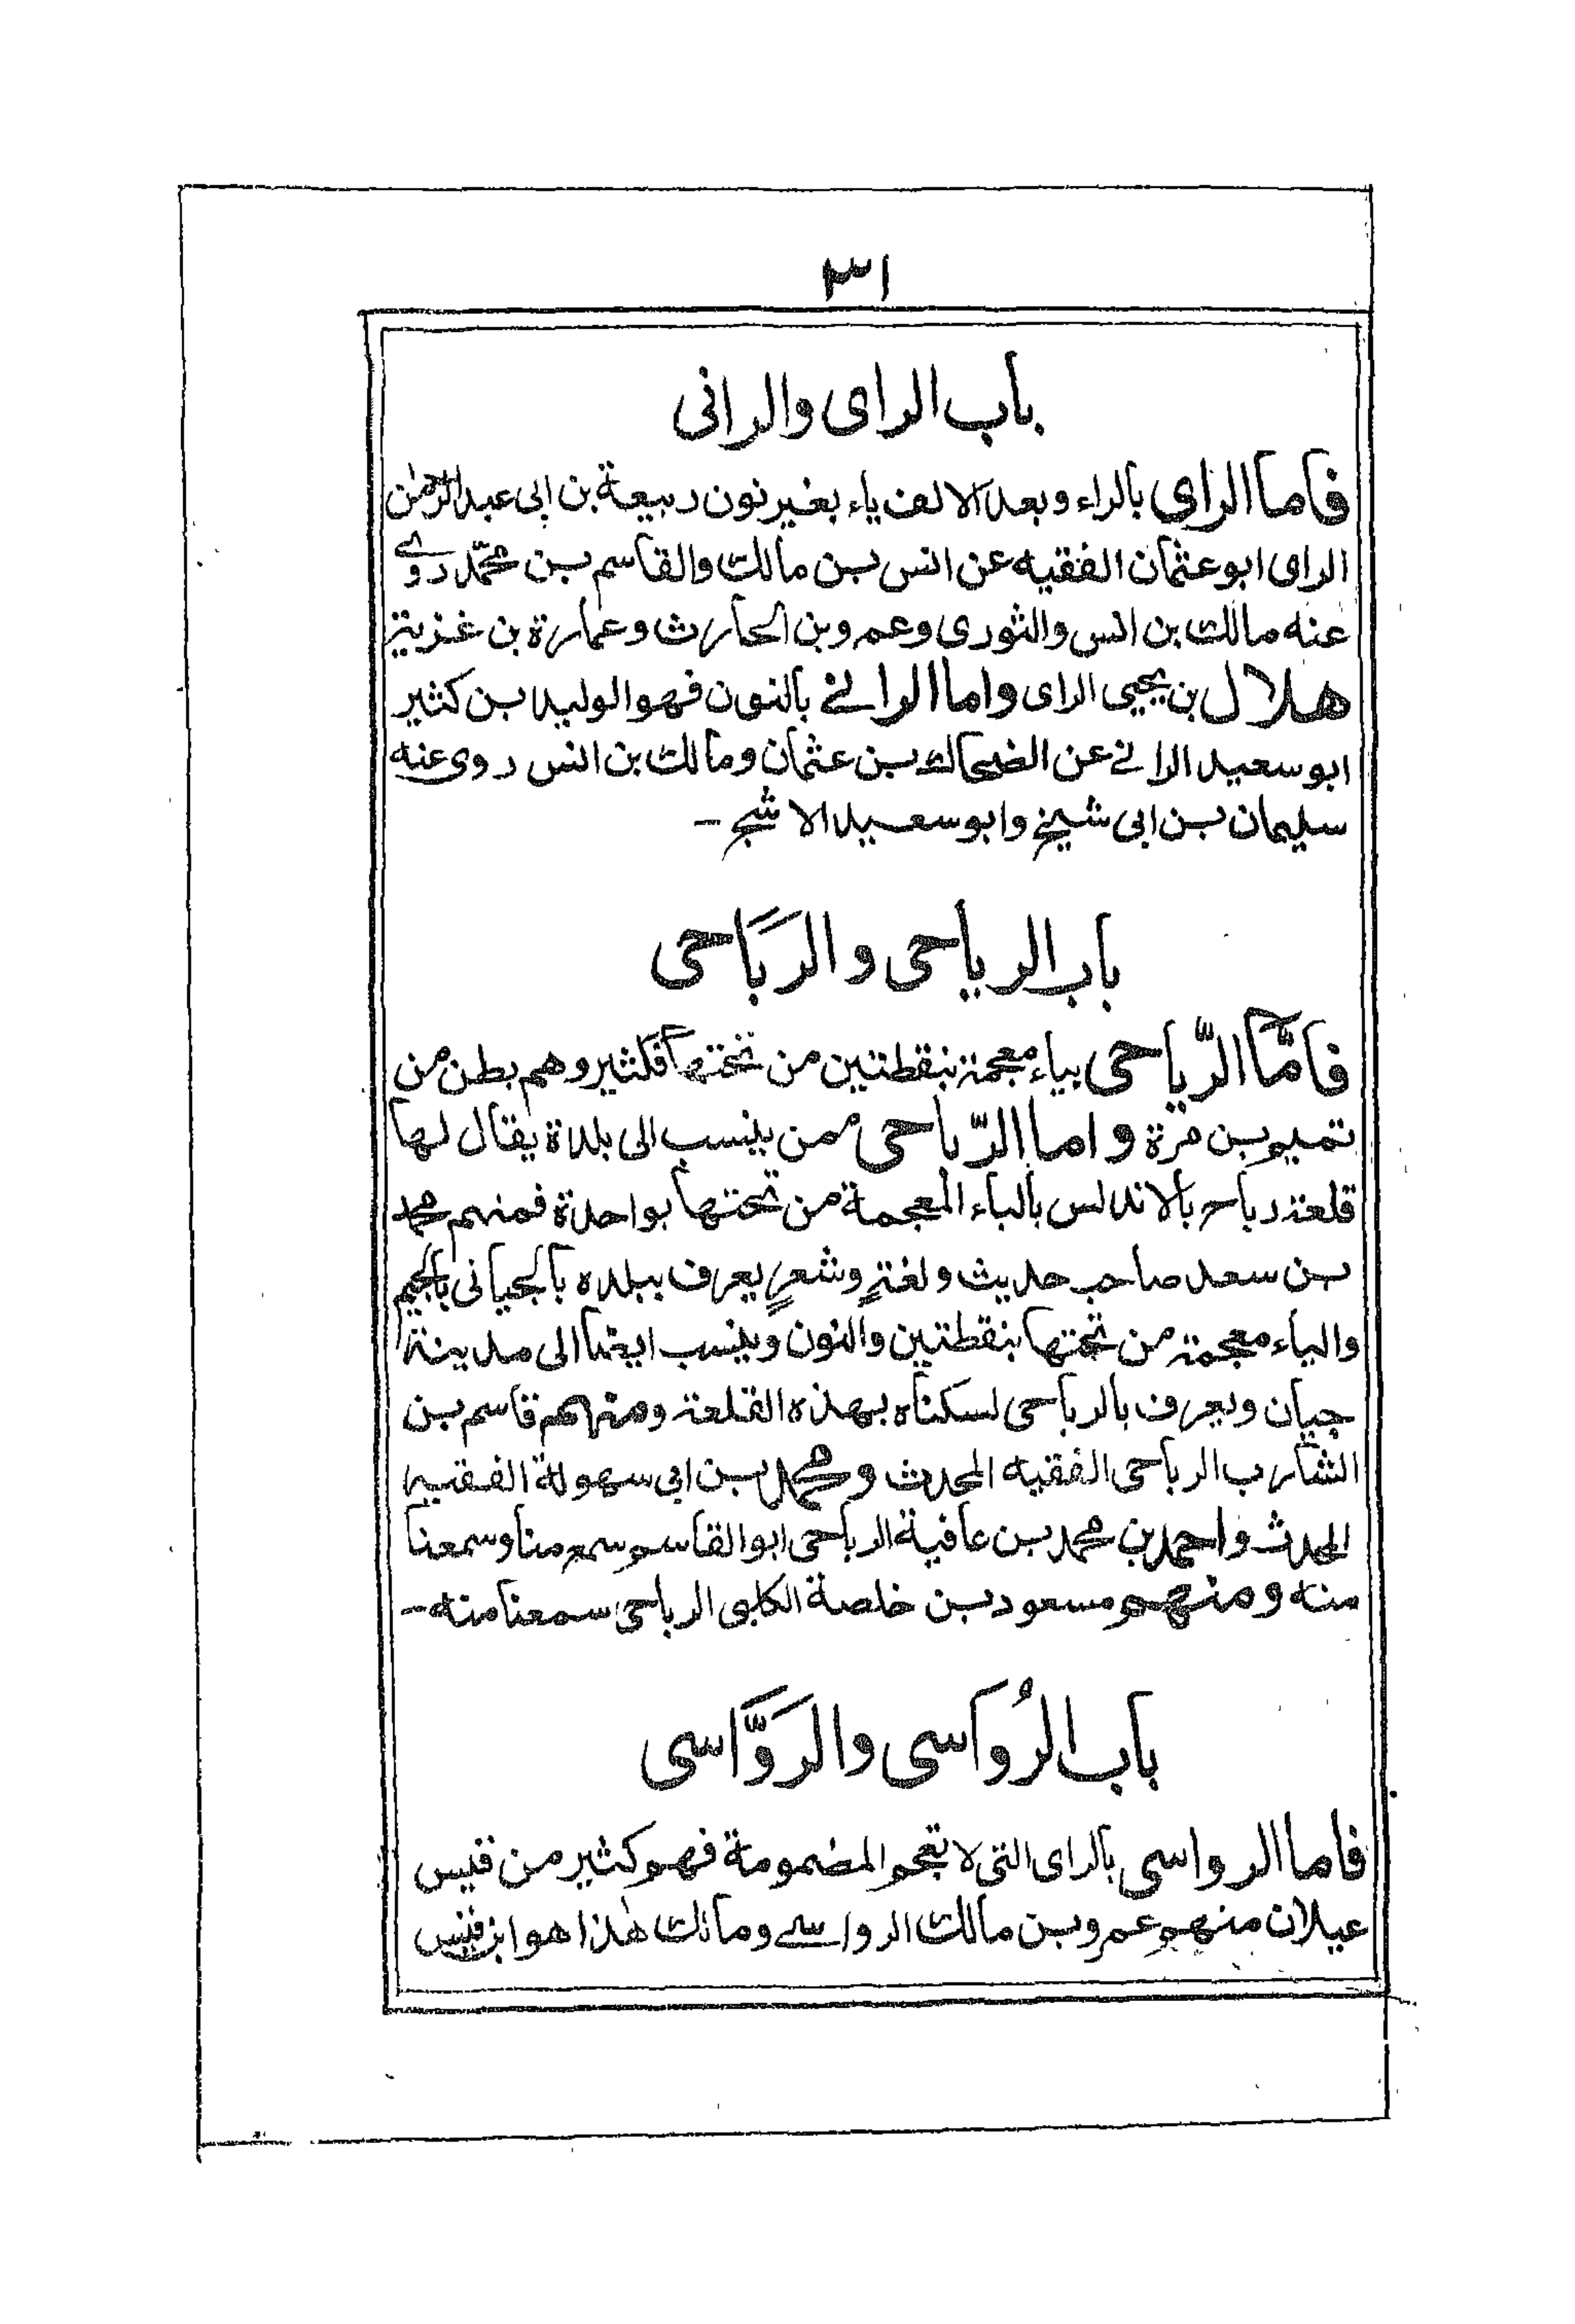 ٣١
باب الراى والرانى
فاما الراى بالراء وبعد الالف ياء بغير نون ربيعة بن ابى عبد الرحمٰن
الراى ابو عثمان الفقيه عن انس بن مالك والقاسم بن محمّد روى
عنه مالك بن انس والثورى وعمرو بن الحارث وعمارة بن غزية
هلال بن يحيى الراى واما الرانے بالنون فهو الوليد بن كثير
ابو سعيد الرانے عن الضحاك بن عثمان ومالك بن انس روى عنه
سليمان بن ابى شيخ وابو سعيد الاشج –
باب الرياحى والرَبَاحى
فامّا الرّياحى بياء معجمة بنقطتين من تحتها فكثير وهم بطن من
تميم بن مرة واما الرّباحى ممن ينسب الى بلدة يقال لها
قلعة رباح بالاندلس بالباء المعجمة من تحتها بواحدة فمنهم محمد
بن سعد صاحب حديث ولغةٍ وشعرٍ يعرف ببلده بالجيانى بالجيم
والياء معجمة من تحتها بنقطتين والنون وينسب ايضا الى مدينة
جيان ويعرف بالرباحى لسكناه بهذه القلعة ومنهم قاسم بن
الشارب الرباحى الفقيه المحدث ومحمد بن ابى سهولة الفقيه
المحدث واحمد بن محمد بن عافية الرباحى ابو القاسم سمع منا وسمعنا
منه ومنهم مسعود بن خلصة الكلبى الرباحى سمعنا منه –
باب الرُواَسى والرَوَّاسى
فاما الرواسى بالراى التى لا تعجم المضمومة فهو كثير من قيس
عيلان منهم عمرو بن مالك الرواسے ومالك هٰذا هو ابن قيس